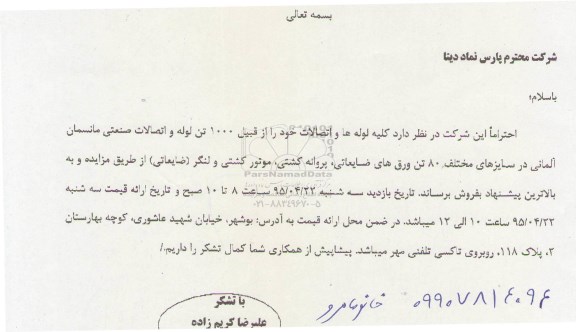 بسمه تعالی
شرکت محترم پارس نماد دیتا
باسلام؛
احتراماً این شرکت در نظر دارد کلیه لوله ها و اتصالات خود را از قبیل ۱۰۰۰ تن لوله و اتصالات صنعتی مانسمان
آلمانی در سایزهای مختلف، ۸۰ تن ورق های ضایعاتی، پروانه کشتی، موتور کشتی و لنگر (ضایعاتی) از طریق مزایده و به
بالاترین پیشنهاد بفروش برساند. تاریخ بازدید سه شنبه ۹۵/۰۴/۲۲ ساعت ۸ تا ۱۰ صبح و تاریخ ارائه قیمت سه شنبه
۹۵/۰۴/۲۲ ساعت ۱۰ الی ۱۲ میباشد. در ضمن محل ارائه قیمت به آدرس: بوشهر، خیابان شهید عاشوری، کوچه بهارستان
۲، پلاک ۱۱۸، روبروی تاکسی تلفنی مهر میباشد. پیشاپیش از همکاری شما کمال تشکر را داریم./
۰۹۹۰۷۸۱۴۰۹۴ خانم
با تشکر
علیرضا کریم زاده
ParsNamadData
۰۲۱-۸۸۳۴۹۶۷۰-۵